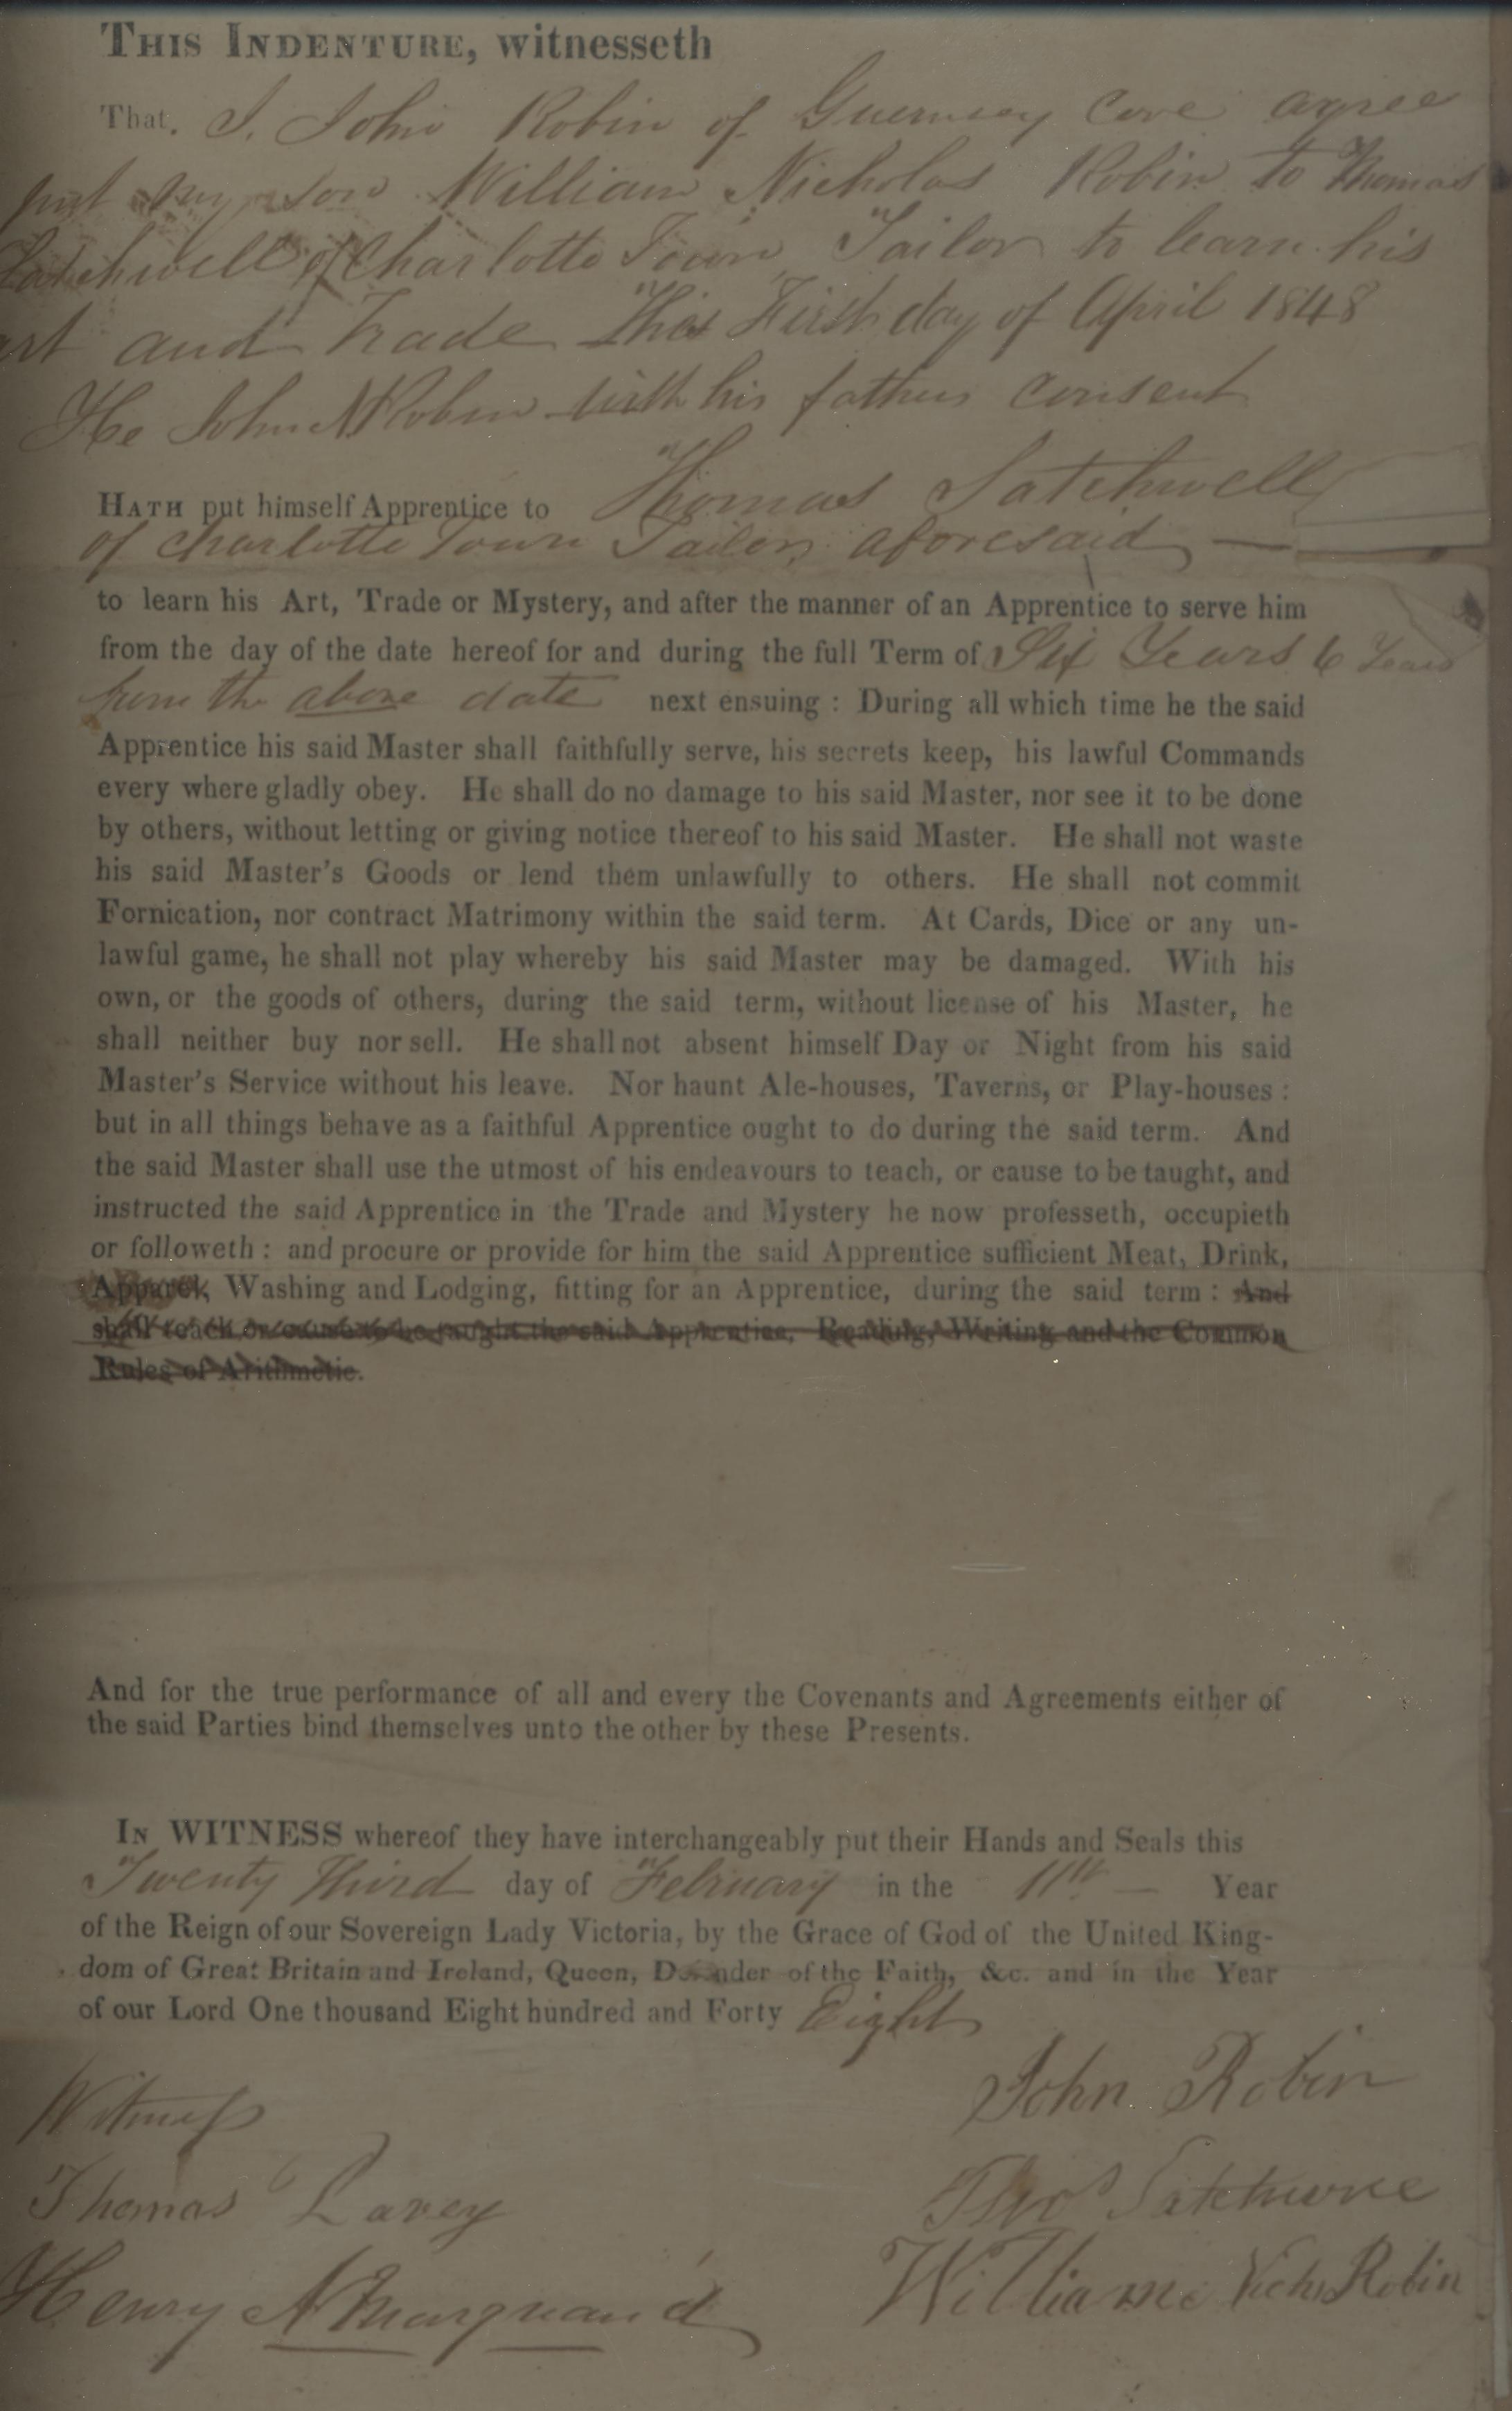 THIS INDENTURE, witnesseth
That. I. John Robin of Guernsey Cove agree
put my son William Nicholas Robin to Thomas
Satchwell of Charlotte Town Tailor to learn his
art and Trade This First day of April 1848
He John N Robin with his fathers consent
HATH put himself Apprentice to Thomas Satchwell
of Charlotte Town Tailor aforesaid —
to learn his Art, Trade or Mystery, and after the manner of an Apprentice to serve him
from the day of the date hereof for and during the full Term of Six Years 6 Years
from the above date next ensuing : During all which time he the said
Apprentice his said Master shall faithfully serve, his secrets keep, his lawful Commands
every where gladly obey. He shall do no damage to his said Master, nor see it to be done
by others, without letting or giving notice thereof to his said Master. He shall not waste
his said Master's Goods or lend them unlawfully to others. He shall not commit
Fornication, nor contract Matrimony within the said term. At Cards, Dice or any un-
lawful game, he shall not play whereby his said Master may be damaged. With his
own, or the goods of others, during the said term, without license of his Master, he
shall neither buy nor sell. He shall not absent himself Day or Night from his said
Master's Service without his leave. Nor haunt Ale-houses, Taverns, or Play-houses :
but in all things behave as a faithful Apprentice ought to do during the said term. And
the said Master shall use the utmost of his endeavours to teach, or cause to be taught, and
instructed the said Apprentice in the Trade and Mystery he now professeth, occupieth
or followeth : and procure or provide for him the said Apprentice sufficient Meat, Drink,
Apparel, Washing and Lodging, fitting for an Apprentice, during the said term : And
shall teach or cause to be taught the said Apprentice, Reading, Writing and the Common
Rules of Arithmetic.
And for the true performance of all and every the Covenants and Agreements either of
the said Parties bind themselves unto the other by these Presents.
IN WITNESS whereof they have interchangeably put their Hands and Seals this
Twenty Third day of February in the 11th — Year
of the Reign of our Sovereign Lady Victoria, by the Grace of God of the United King-
dom of Great Britain and Ireland, Queen, Defender of the Faith, &c. and in the Year
of our Lord One thousand Eight hundred and Forty Eight
John Robin
Witness
Thos Satchwell
Thomas Lavey
William Nichs Robin
Henry N Marquand